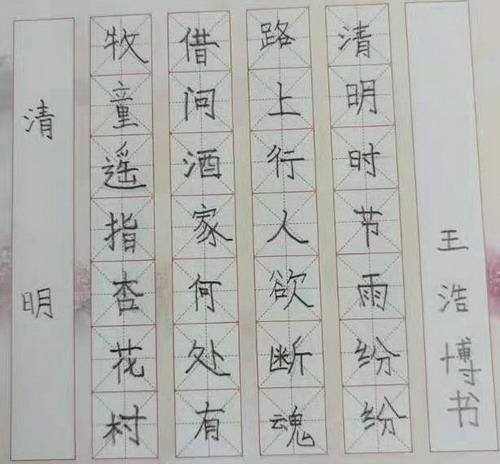 清明时节雨纷纷
路上行人欲断魂
借问酒家何处有
牧童遥指杏花村
清明
王浩博书